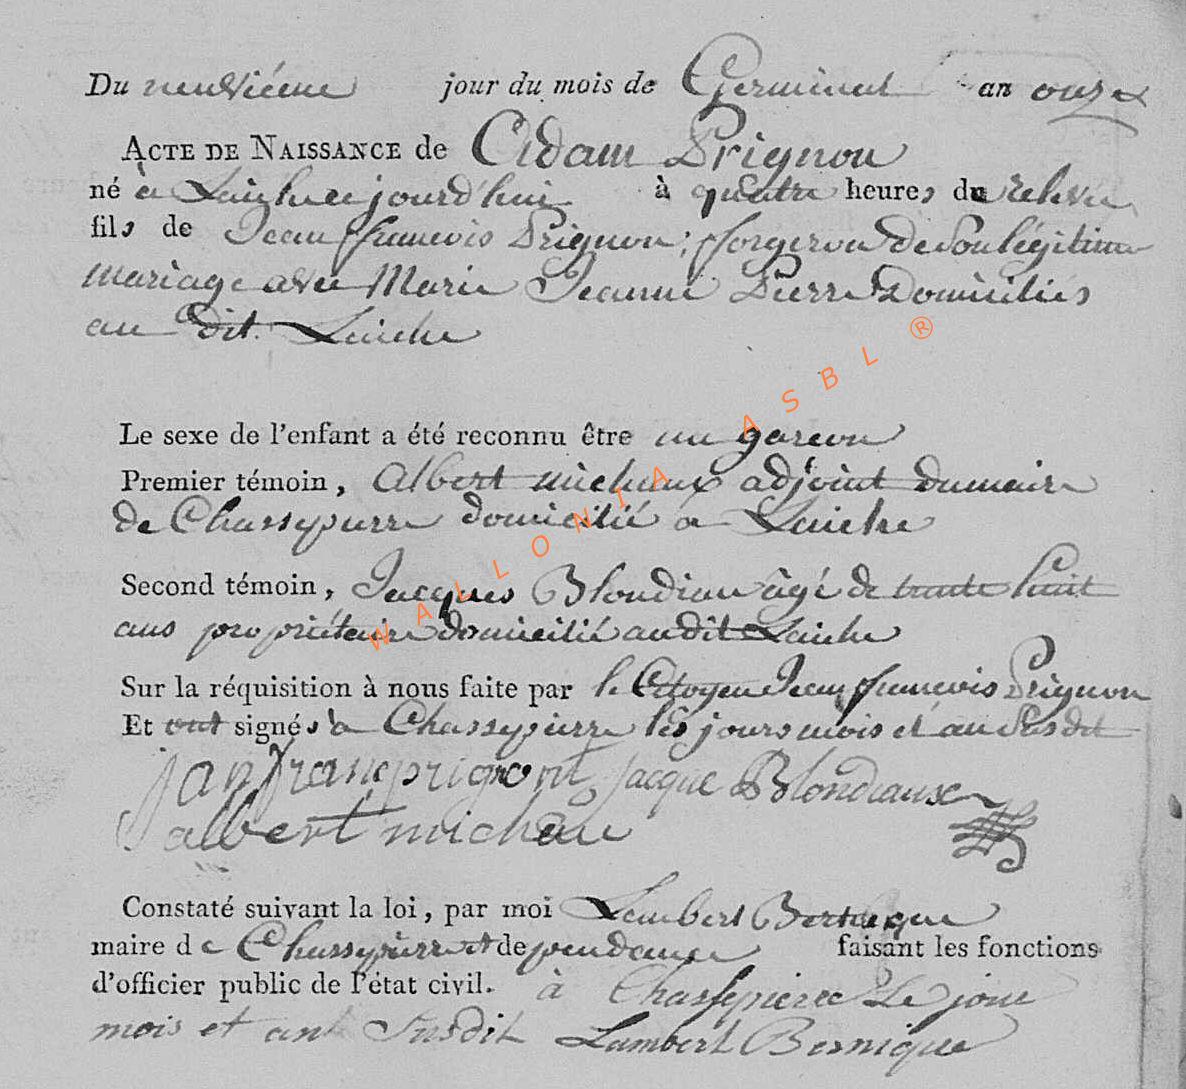 Du neuvième jour du mois de Germinal an onze
ACTE DE NAISSANCE de Adam Prignon
né à Laiche ce jourd'hui à quatre heures de relevée
fils de Jean françois Prignon, forgeron de Son légitime
mariage avec Marie Jeanne Pierre Domiciliés
au dit Laiche
Le sexe de l'enfant a été reconnu être un garcon
Premier témoin, Albert michaux adjoint du maire
de Chassepierre domicilié a Laiche
Second témoin, Jacques Blondiau âgé de trente huit
ans propriétaire domicilié audit Laiche
Sur la réquisition à nous faite par le Citoyen Jean françois Prignon
Et ont signés à Chassepierre les jours mois et an Susdit
jan franc prignont jacque Blondiaux
albert michau
Constaté suivant la loi, par moi Lambert Bernique
maire de Chassepierre et dependance faisant les fonctions
d'officier public de l'état civil. à Chassepierre Le jour
mois et ant Susdit Lambert Bernique
WALLONIA ASBL ®